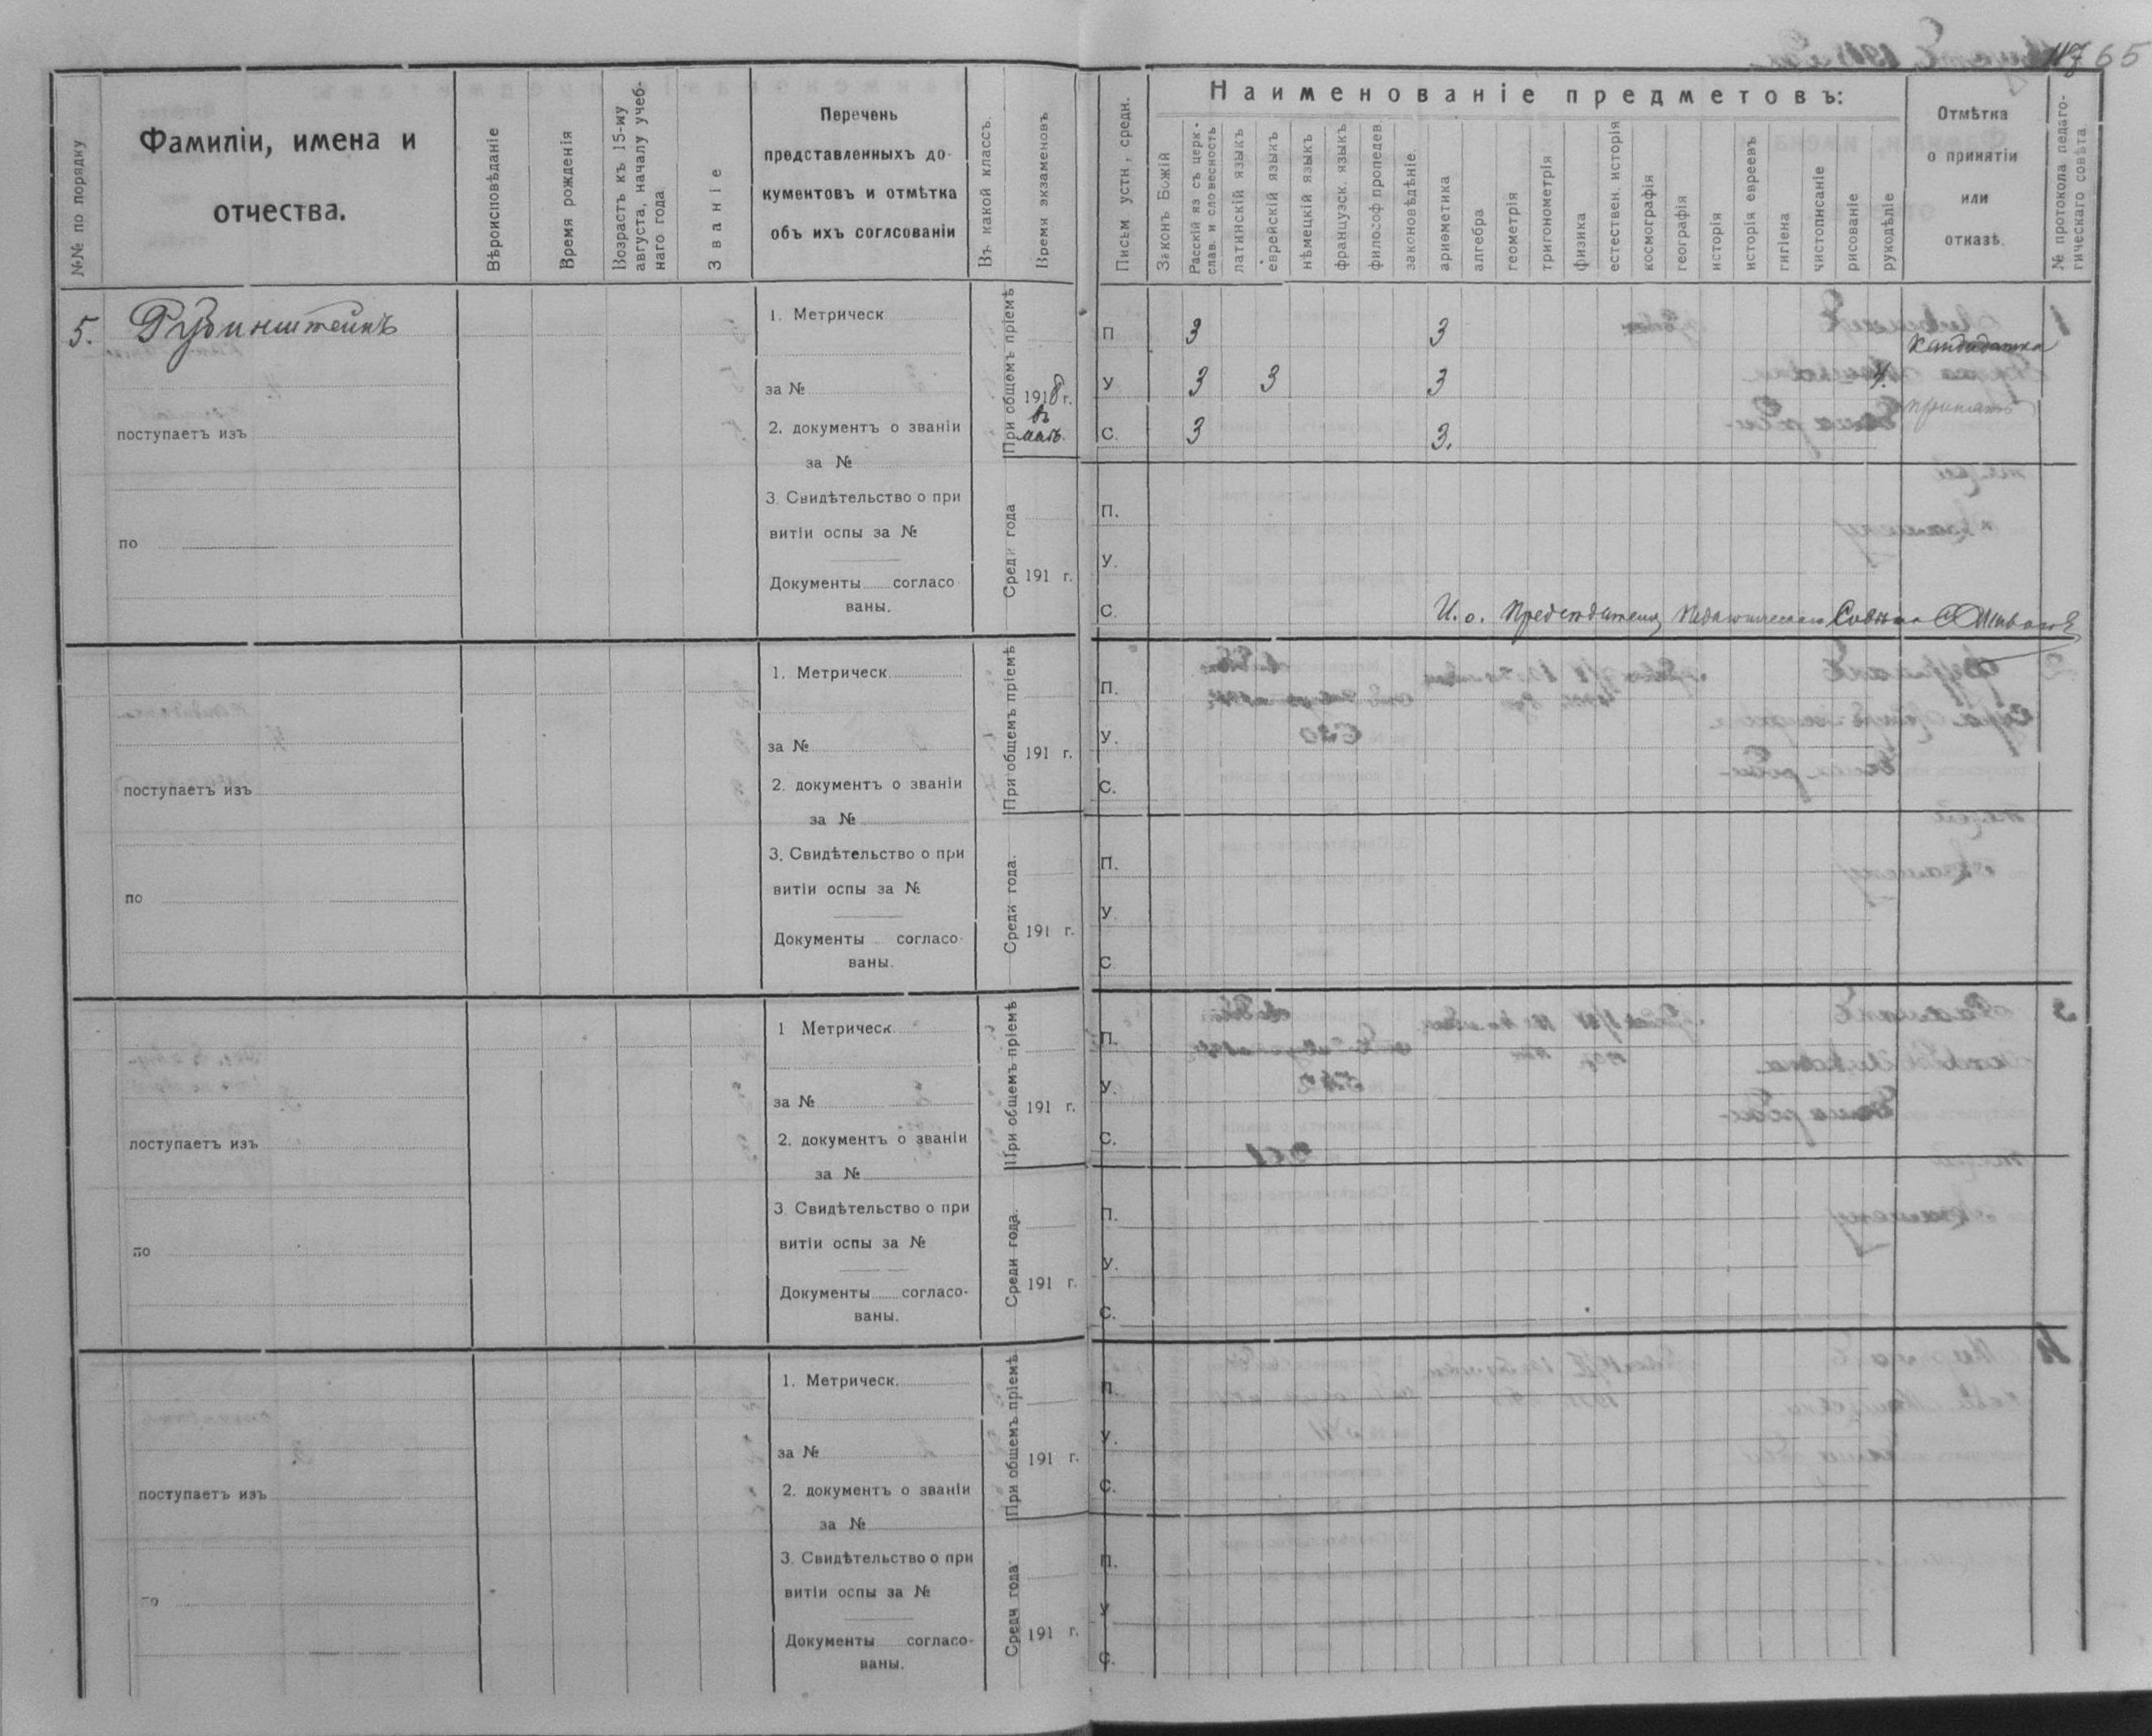 65
№№ по порядку
Фамиліи, имена и
отчества.
Вѣроисповѣданіе
Время рожденія
Возрастъ къ 15-му
августа, началу учеб-
наго года
Званіе
Перечень
представленныхъ до-
кументовъ и отмѣтка
объ ихъ соглсованіи
Въ какой классъ.
Время экзаменовъ
Письм устн, средн.
Наименованіе предметовъ:
Законъ Божій
Расскій яз съ церк-
слав. и словесность
латинскій языкъ
еврейскій языкъ
нѣмецкій языкъ
французск. языкъ
философ пропедев
законовѣдѣніе.
ариѳметика
алгебра
геометрія
тригонометрія
физика
естествен. исторія
космографія
географія
исторія
исторія евреевъ
гигіена
чистописаніе
рисованіе
рукодѣліе
Отмѣтка
о принятіи
или
отказѣ.
№ протокола педаго-
гическаго совѣта
5. Рубинштейнъ
поступаетъ изъ
по
1. Метрическ
за №
2. документъ о званіи
за №
3. Свидѣтельство о при
витіи оспы за №
Документы согласо
ваны.
При общемъ пріемѣ
1918 г.
въ
маѣ.
П 3 3
Кандидатка
У 3 3 3 4.
принять
С. 3 3.
Среди года
191 г.
П.
У.
С.
И. о. Предсѣдателя Педагогическаго Совѣта
1. Метрическ
за №
поступаетъ изъ
2. документъ о званіи
за №
3. Свидѣтельство о при
витіи оспы за №
по
Документы согласо-
ваны.
При общемъ пріемѣ
191 г.
П.
У.
С.
Среди года.
191 г.
П.
У
С
1 Метрическ
за №
поступаетъ изъ
2. документъ о званіи
за №
3. Свидѣтельство о при
витіи оспы за №
по
Документы согласо-
ваны.
При общемъ пріемѣ
191 г.
П.
У.
С.
Среди года.
191 г.
П.
У.
С.
1. Метрическ.
за №
поступаетъ изъ
2. документъ о званіи
за №
3. Свидѣтельство о при
витіи оспы за №
по
Документы согласо-
ваны.
При общемъ пріемѣ
191 г.
П.
У.
С.
Среди года.
191 г.
П.
У
С.